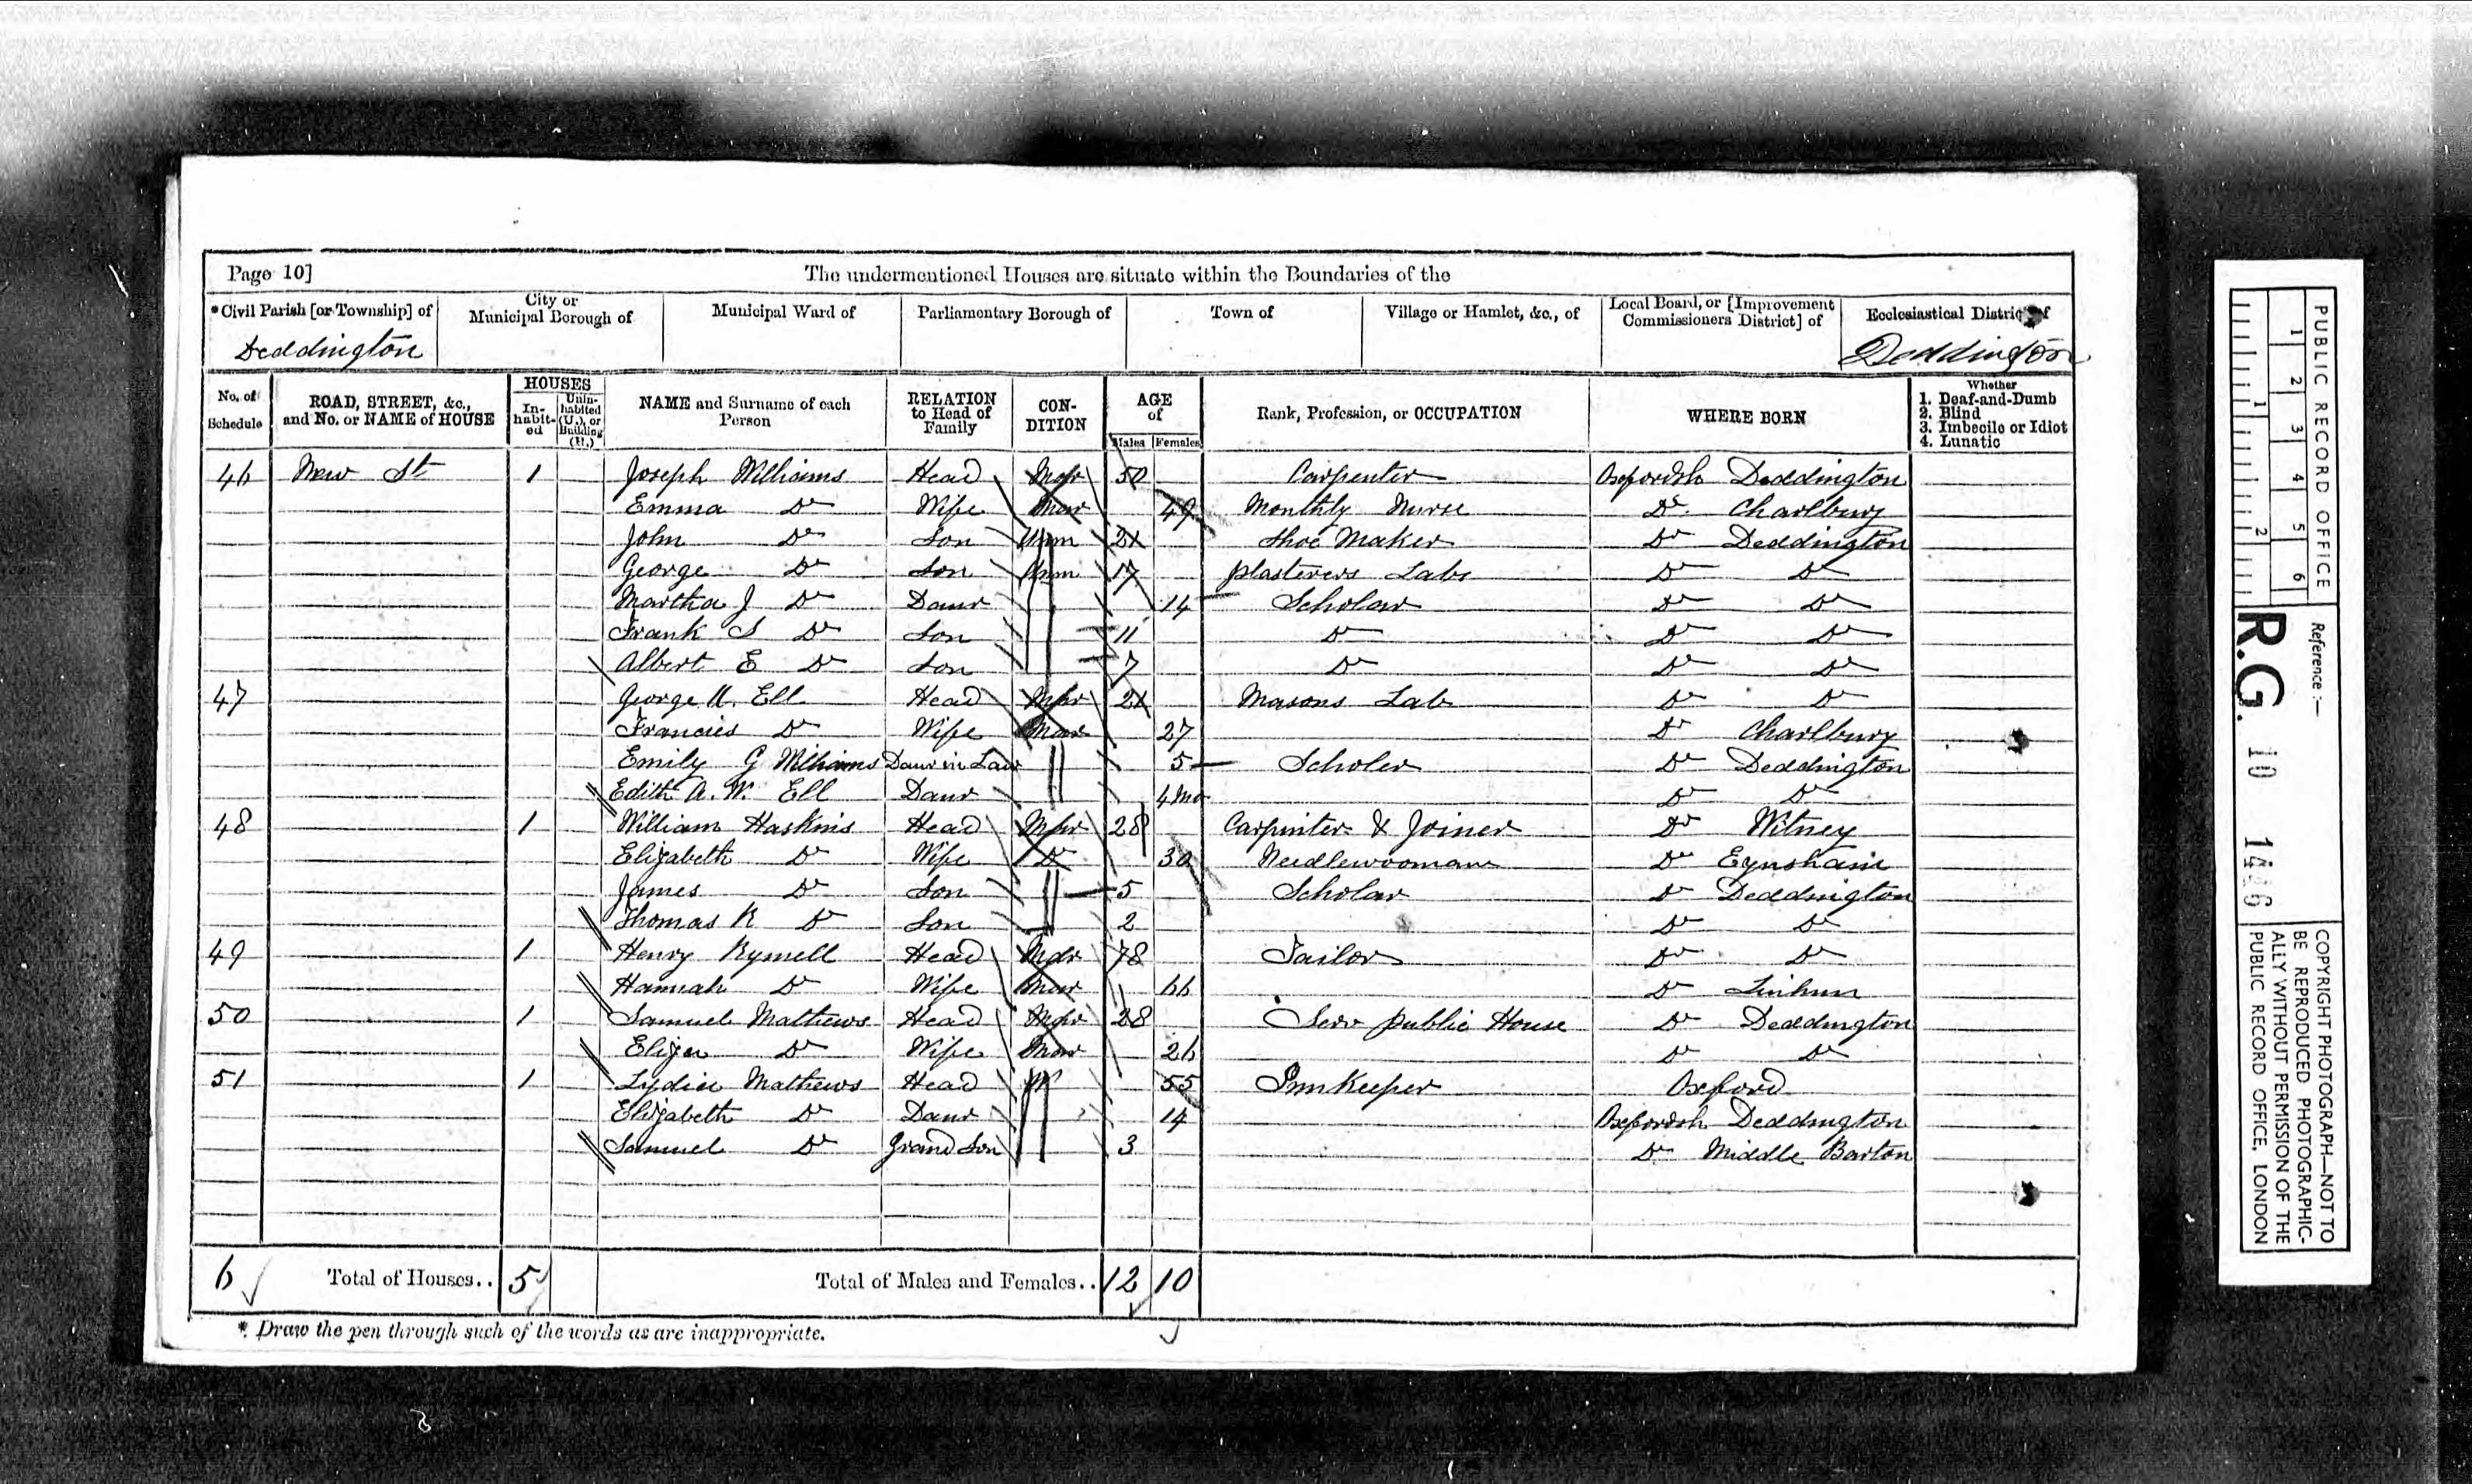 Page 10]
The undermentioned Houses are situate within the Boundaries of the
*Civil Parish [or Township] of
Deddington
City or Municipal Borough of
Municipal Ward of
Parliamentary Borough of
Town of
Village or Hamlet, &c., of
Local Board, or [Improvement Commissioners District] of
Ecclesiastical District of
Deddington
No. of Schedule
ROAD, STREET, &c., and No. or NAME of HOUSE
HOUSES
In-habit-ed
Unin-habited (U.), or Building (B.)
NAME and Surname of each Person
RELATION to Head of Family
CON-DITION
AGE of
Males
Females
Rank, Profession, or OCCUPATION
WHERE BORN
Whether
1. Deaf-and-Dumb
2. Blind
3. Imbecile or Idiot
4. Lunatic
46 New St 1 Joseph Williams Head Mar 50 Carpenter Oxfordsh Deddington
Emma Do Wife Mar 49 Monthly Nurse Do Charlbury
John Do Son Unm 21 Shoe Maker Do Deddington
George Do Son Unm 17 Plasterers Labr Do Do
Martha J Do Daur 14 Scholar Do Do
Frank S Do Son 11 Do Do Do
Albert E Do Son 7 Do Do Do
47 George Ell Head Mar 21 Masons Lab Do Do
Francies Do Wife Mar 27 Do Charlbury
Emily G Williams Daur in Law 5 Scholer Do Deddington
Edith A. W. Ell Daur 4 Mo Do Do
48 1 William Haskins Head Mar 28 Carpinter & Joiner Do Witney
Elizabeth Do Wife Do 30 Needlewooman Do Eynsham
James Do Son 5 Scholar Do Deddington
Thomas R Do Son 2 Do Do
49 1 Henry Rymell Head Mar 78 Tailor Do Do
Hannah Do Wife Mar 66 Do
50 1 Samuel Mathews Head Mar 28 Serv Public House Do Deddington
Elizer Do Wife Mar 26 Do Do
51 1 Lydier Mathews Head W 55 InnKeeper Oxford
Elizabeth Do Daur 14 Oxfordsh Deddington
Samuel Do Grand Son 3 Do Middle Barton
6 Total of Houses.. 5 Total of Males and Females.. 12 10
*. Draw the pen through such of the words as are inappropriate.
PUBLIC RECORD OFFICE
1 2 3 4 5 6
1 2
Reference :—
R.G. 10 1446
COPYRIGHT PHOTOGRAPH—NOT TO
BE REPRODUCED PHOTOGRAPHIC-
ALLY WITHOUT PERMISSION OF THE
PUBLIC RECORD OFFICE, LONDON